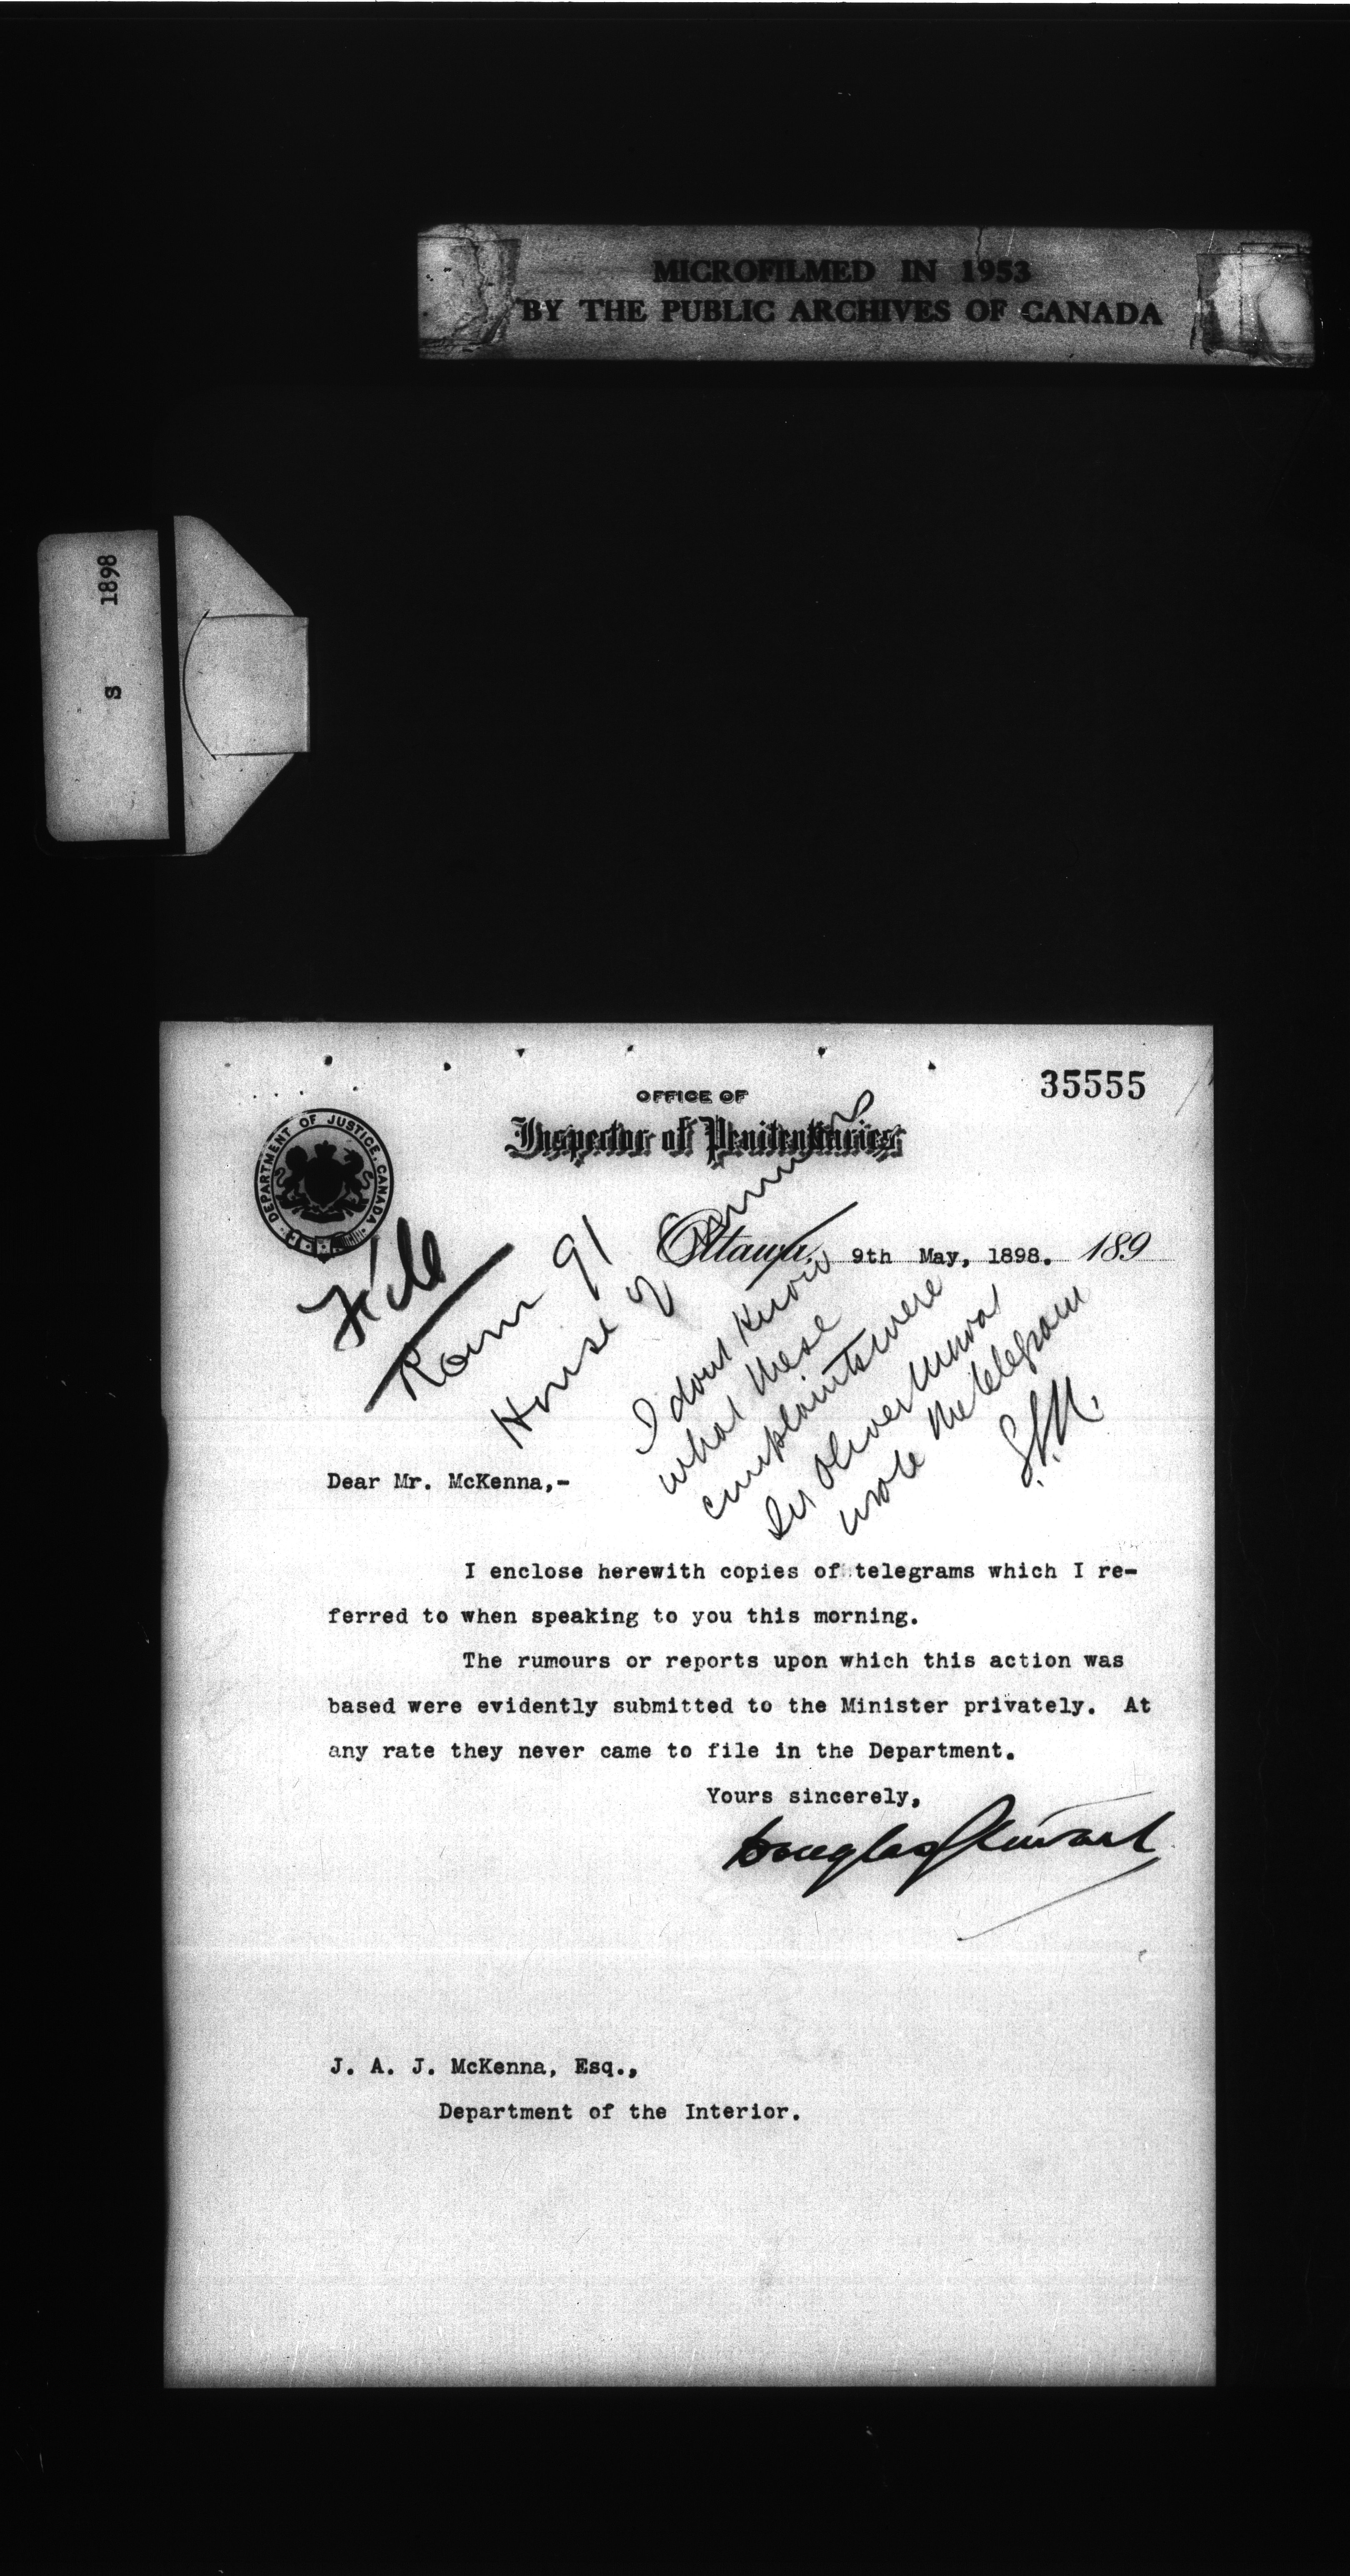 MICROFILMED IN 1953
BY THE PUBLIC ARCHIVES OF CANADA
S 1898
35555
OFFICE OF
Inspector of Penitentiaries
DEPARTMENT OF JUSTICE, CANADA
Ottawa, 9th May, 1898. 189
File
Room 91
House of Commons
I dont know
what these
complaints were
Sir Oliver Mowat
wrote the telegram
Dear Mr. McKenna,-
I enclose herewith copies of telegrams which I re-
ferred to when speaking to you this morning.
The rumours or reports upon which this action was
based were evidently submitted to the Minister privately. At
any rate they never came to file in the Department.
Yours sincerely,
Douglas Stewart
J. A. J. McKenna, Esq.,
Department of the Interior.